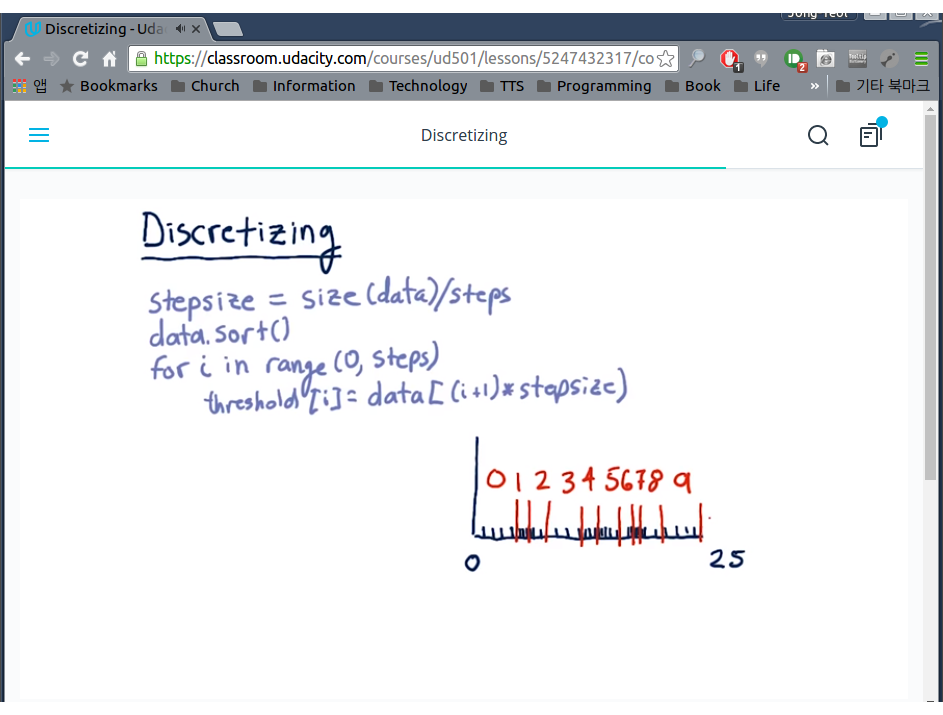 Jong Yeol
Discretizing - Uda
https://classroom.udacity.com/courses/ud501/lessons/5247432317/co
1
2
앱 Bookmarks Church Information Technology TTS Programming Book Life » 기타 북마크
Discretizing
Discretizing
stepsize = size(data)/steps
data.sort()
for i in range(0, steps)
threshold[i]= data[(i+1)*stepsize)
0 1 2 3 4 5 6 7 8 9
0 25